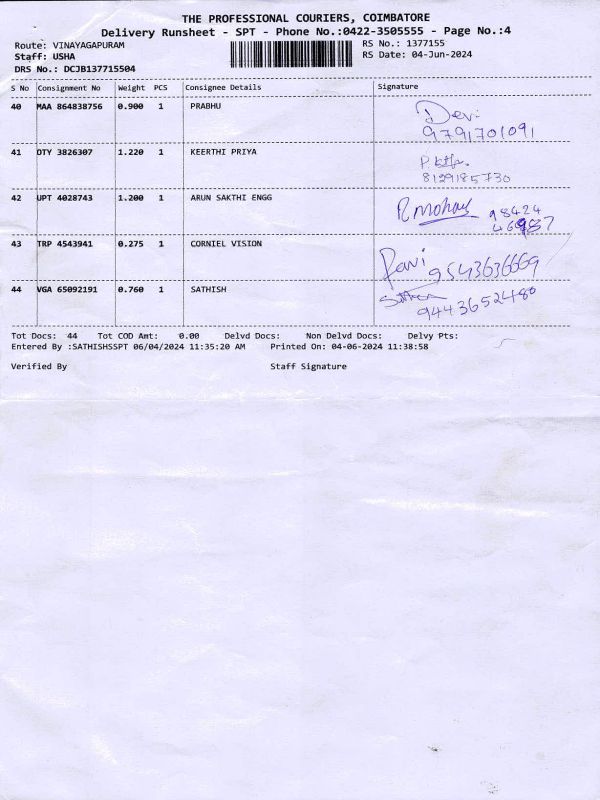 THE PROFESSIONAL COURIERS, COIMBATORE
Delivery Runsheet - SPT - Phone No.:0422-3505555 - Page No.:4
Route: VINAYAGAPURAM RS No.: 1377155
Staff: USHA RS Date: 04-Jun-2024
DRS No.: DCJB137715504
S No Consignment No Weight PCS Consignee Details Signature
40 MAA 864838756 0.900 1 PRABHU Devi
9791701091
41 OTY 3826307 1.220 1 KEERTHI PRIYA
8129185730
42 UPT 4028743 1.200 1 ARUN SAKTHI ENGG R.mohan 98424
43 TRP 4543941 0.275 1 CORNIEL VISION Ravi 9543636669
44 VGA 65092191 0.760 1 SATHISH
9443652480
Tot Docs: 44 Tot COD Amt: 0.00 Delvd Docs: Non Delvd Docs: Delvy Pts:
Entered By :SATHISHSSPT 06/04/2024 11:35:20 AM Printed On: 04-06-2024 11:38:58
Verified By Staff Signature